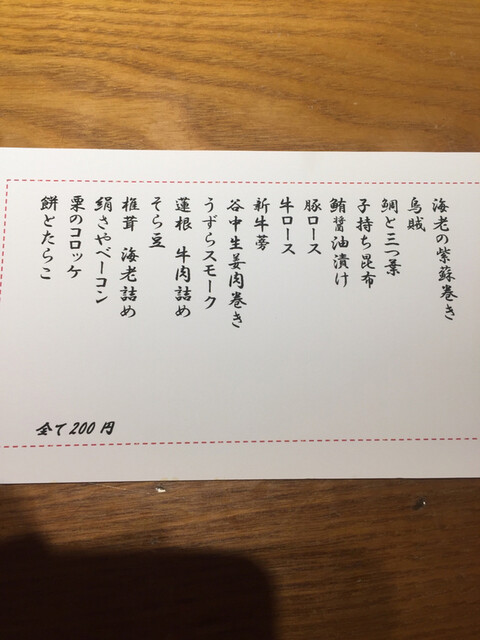 海老の紫蘇巻き
烏賊
鯛と三つ葉
子持ち昆布
鮪醤油漬け
豚ロース
牛ロース
新牛蒡
谷中生姜肉巻き
うずらスモーク
蓮根 牛肉詰め
そら豆
椎茸 海老詰め
絹さやベーコン
栗のコロッケ
餅とたらこ
全て200円